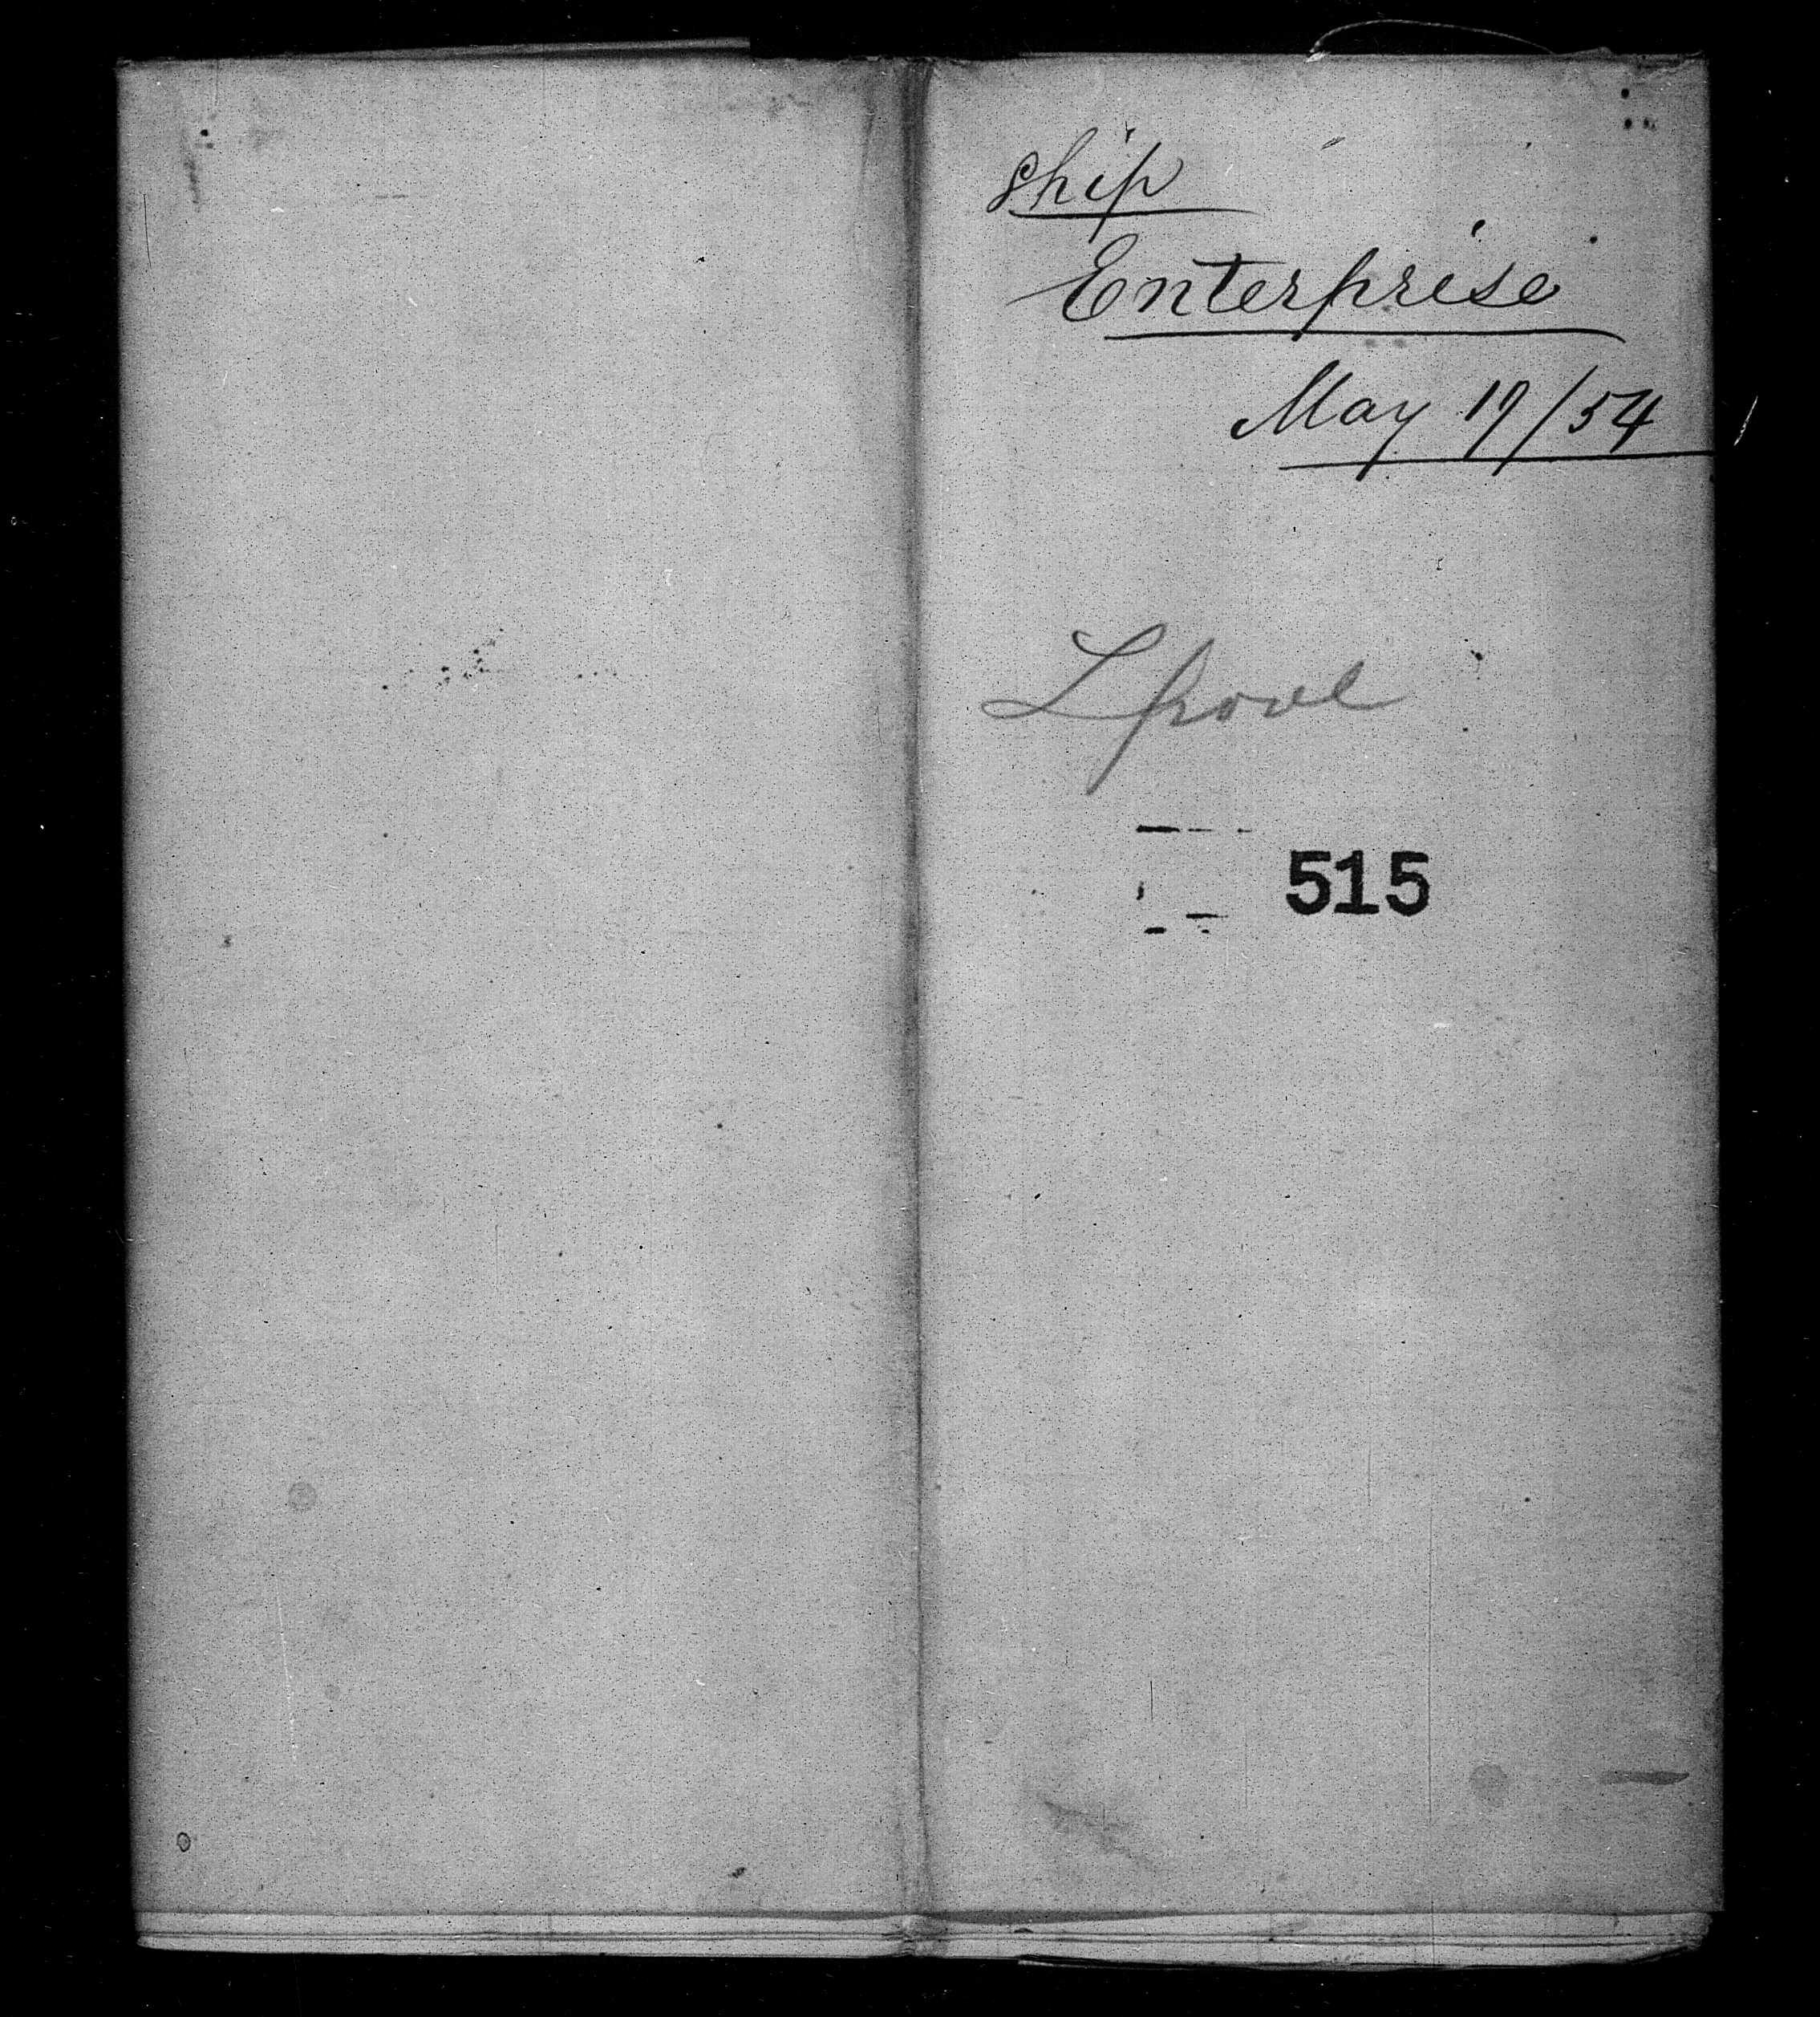 Ship
Enterprise
May 19/54
Lpool
515